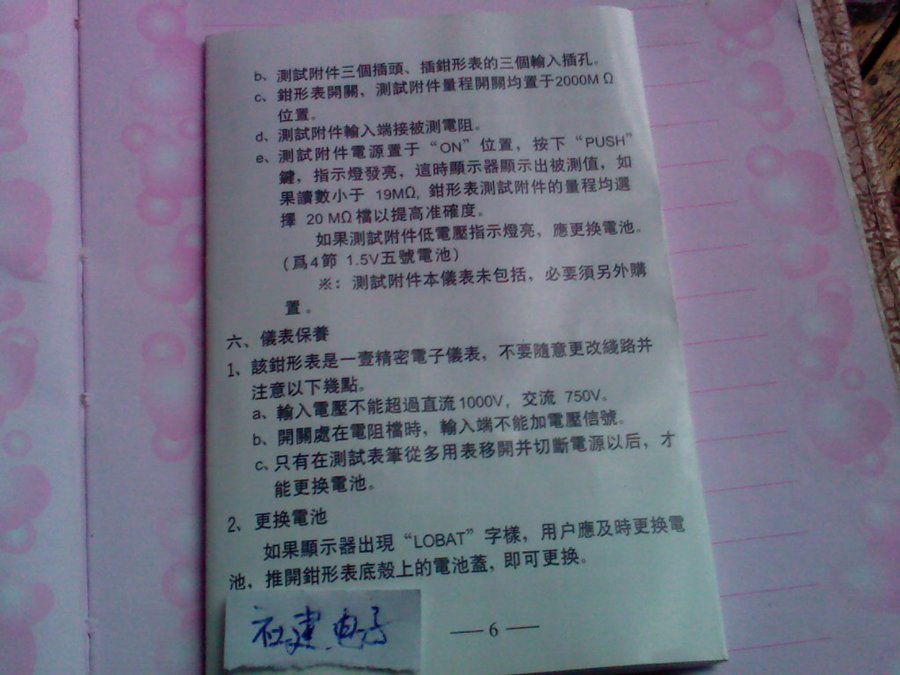 b、測試附件三個插頭、插鉗形表的三個輸入插孔。
c、鉗形表開關，測試附件量程開關均置于2000MΩ
位置。
d、測試附件輸入端接被測電阻。
e、測試附件電源置于“ON”位置，按下“PUSH”
鍵，指示燈發亮，這時顯示器顯示出被測值，如
果讀數小于 19MΩ, 鉗形表測試附件的量程均選
擇 20 MΩ檔以提高准確度。
如果測試附件低電壓指示燈亮，應更换電池。
(爲4節 1.5V五號電池)
※：測試附件本儀表未包括，必要須另外購
置。
六、儀表保養
1、該鉗形表是一壹精密電子儀表，不要隨意更改綫路并
注意以下幾點。
a、輸入電壓不能超過直流1000V，交流 750V。
b、開關處在電阻檔時，輸入端不能加電壓信號。
c、只有在測試表筆從多用表移開并切斷電源以后，才
能更换電池。
2、更换電池
如果顯示器出現“LOBAT”字樣，用户應及時更换電
池，推開鉗形表底殼上的電池蓋，即可更换。
建电子
— 6 —